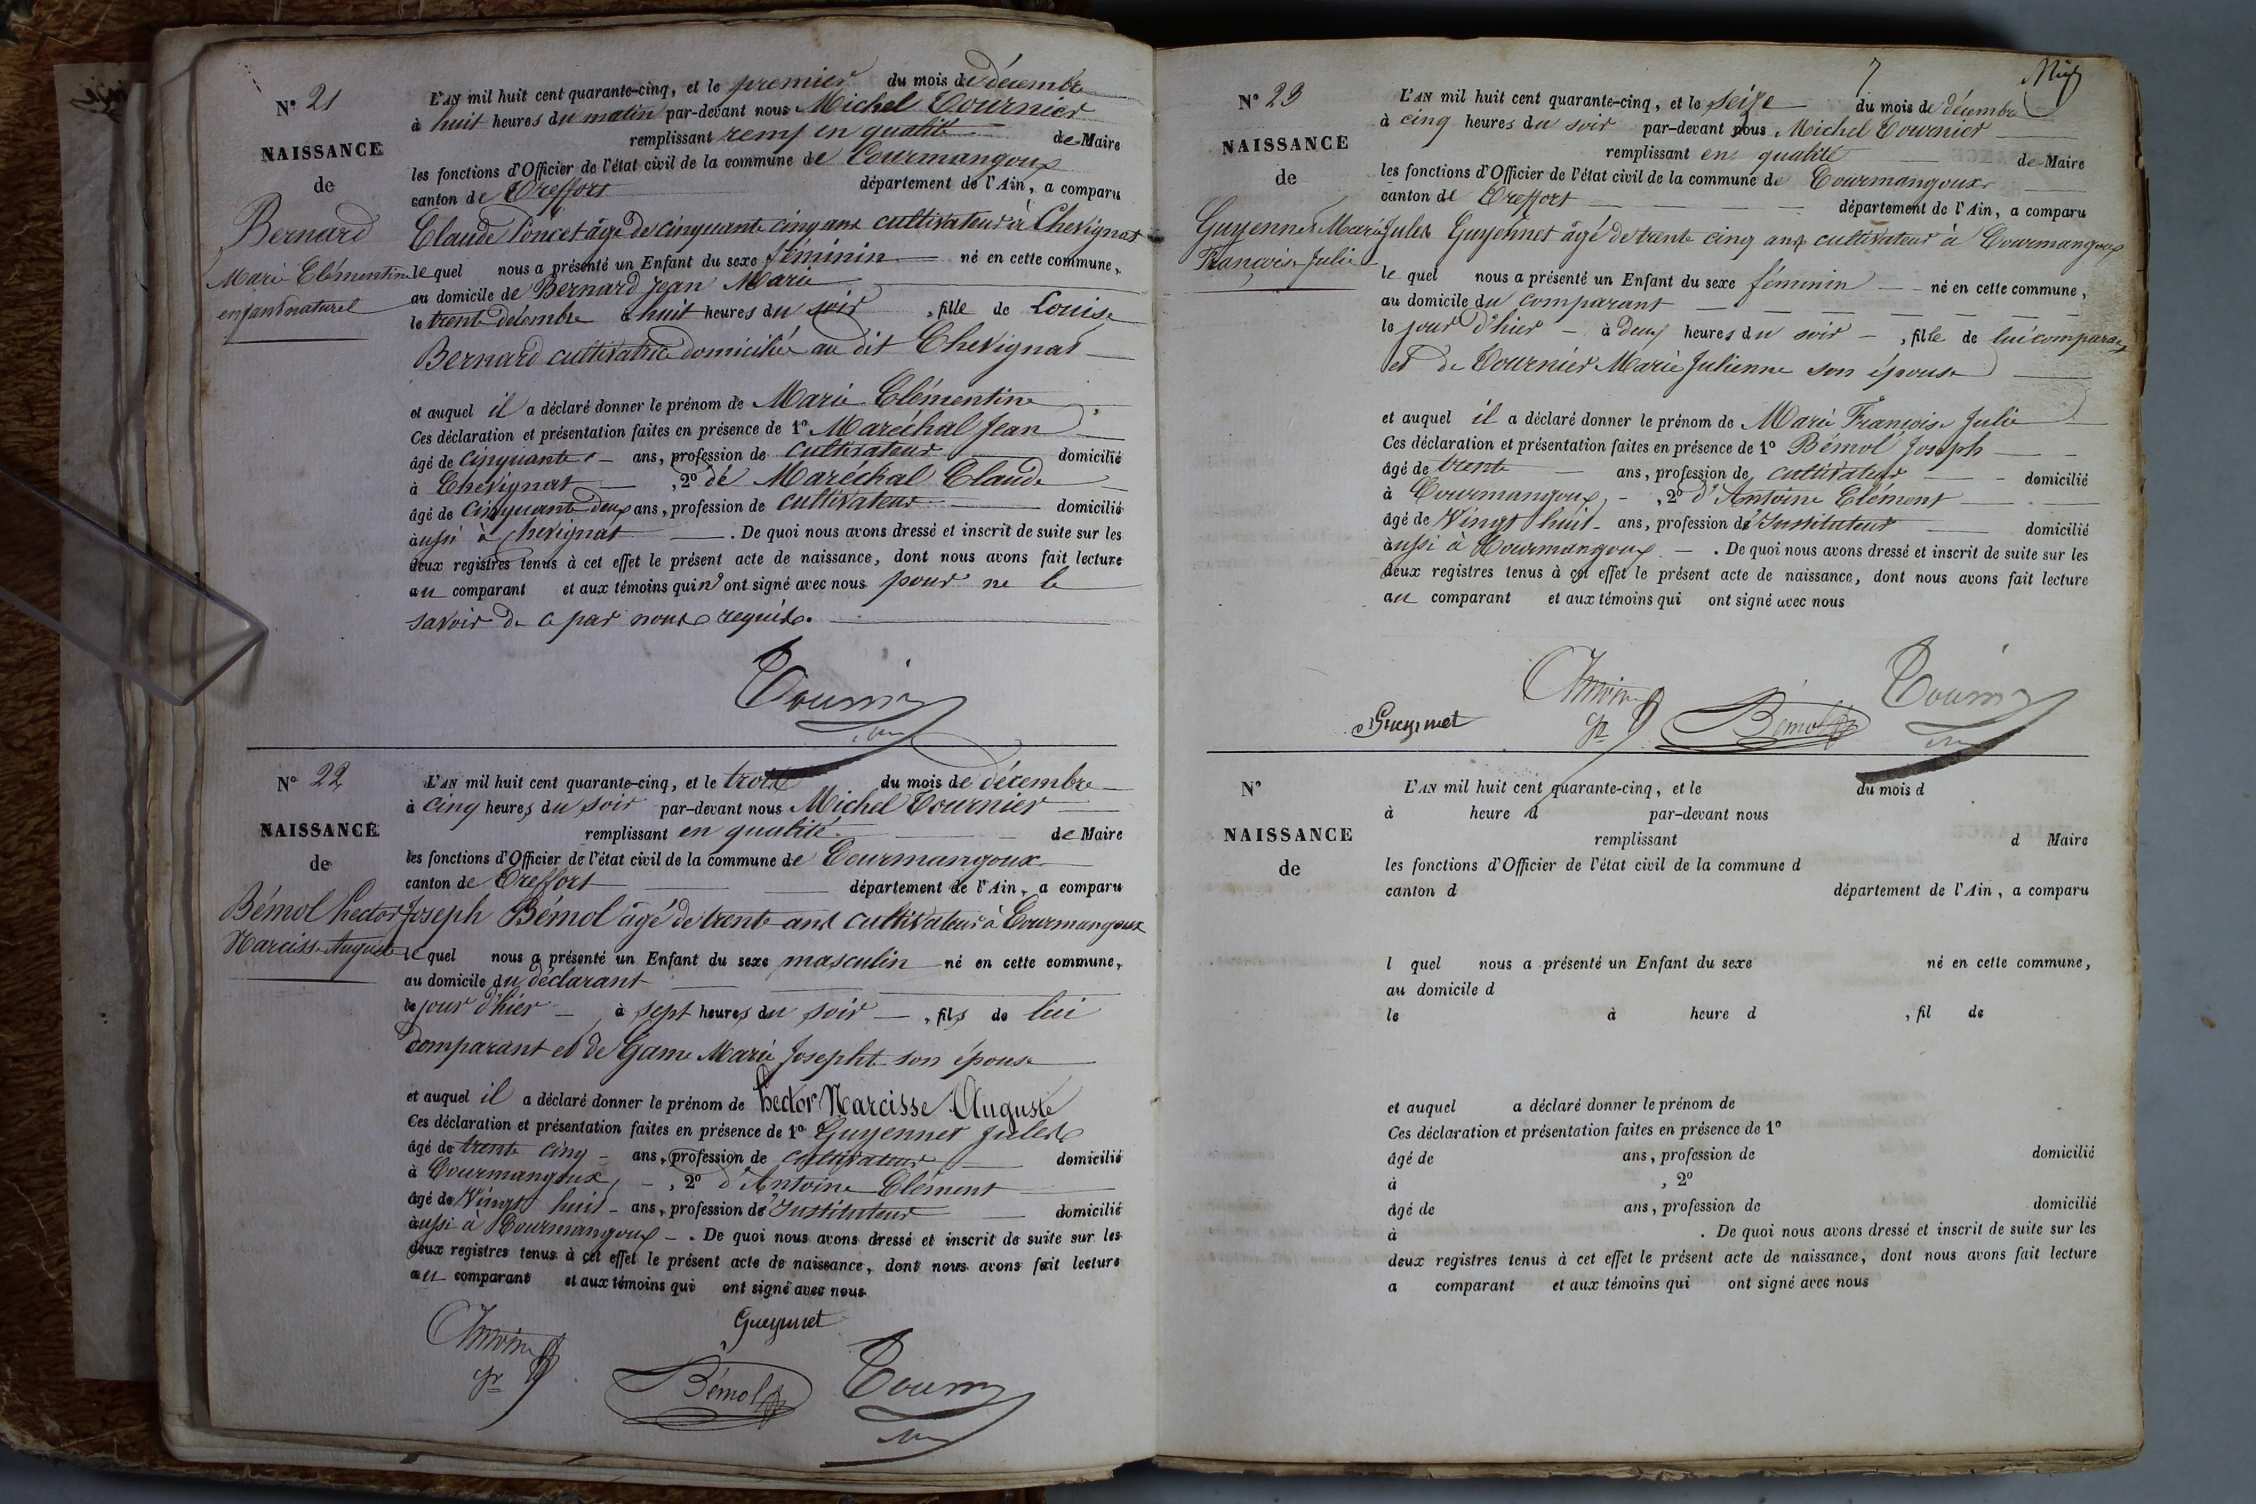 N° 21
NAISSANCE
de
Bernard
Marie Clémentine
enfant naturel
L'AN mil huit cent quarante-cinq, et le premier du mois de décembre
à huit heures du matin par-devant nous Michel Tournier
remplissant en qualité de Maire
les fonctions d'Officier de l'état civil de la commune de Courmangoux
canton de Treffort département de l'Ain, a comparu
Claude Poncet âgé de cinquante cinq ans cultivateur à Chevignat
le quel nous a présenté un Enfant du sexe féminin né en cette commune,
au domicile de Bernard Jean Marie
le trente décembre à huit heures du soir, fille de Louise
Bernard cultivatrice domiciliée au dit Chevignat
et auquel il a déclaré donner le prénom de Marie Clémentine
Ces déclaration et présentation faites en présence de 1° Maréchal Jean
âgé de cinquante ans, profession de cultivateur domicilié
à Chevignat, 2° de Maréchal Claude
âgé de cinquante deux ans, profession de cultivateur domicilié
aussi à Chevignat. De quoi nous avons dressé et inscrit de suite sur les
deux registres tenus à cet effet le présent acte de naissance, dont nous avons fait lecture
au comparant et aux témoins qui n'ont signé avec nous pour ne le
savoir de ce par nous requis.
Tournier
N° 22
NAISSANCE
de
Bémol hector
Narcisse Auguste
L'AN mil huit cent quarante-cinq, et le trois du mois de décembre
à cinq heures du soir par-devant nous Michel Tournier
remplissant en qualité de Maire
les fonctions d'Officier de l'état civil de la commune de Courmangoux
canton de Treffort département de l'Ain, a comparu
Joseph Bémol âgé de trente ans cultivateur à Courmangoux
le quel nous a présenté un Enfant du sexe masculin né en cette commune,
au domicile du déclarant
le jour d'hier à sept heures du soir, fils de lui
comparant et de Game Marie Josephte son épouse
et auquel il a déclaré donner le prénom de hector Narcisse Auguste
Ces déclaration et présentation faites en présence de 1° Guyennet Jules
âgé de trente cinq ans, profession de cultivateur domicilié
à Courmangoux, 2° d'Antoine Clément
âgé de Vingt huit ans, profession d'Instituteur domicilié
aussi à Courmangoux. De quoi nous avons dressé et inscrit de suite sur les
deux registres tenus à cet effet le présent acte de naissance, dont nous avons fait lecture
au comparant et aux témoins qui ont signé avec nous
Antoine Gueynnet
Bémol Tournier
7
N° 23
NAISSANCE
de
Guyennet Marie
Françoise Julie
L'AN mil huit cent quarante-cinq, et le seize du mois de décembre
à cinq heures du soir par-devant nous Michel Tournier
remplissant en qualité de Maire
les fonctions d'Officier de l'état civil de la commune de Courmangoux
canton de Treffort département de l'Ain, a comparu
Jules Guyennet âgé de trente cinq ans cultivateur à Courmangoux
le quel nous a présenté un Enfant du sexe féminin né en cette commune,
au domicile du comparant
le jour d'hier à deux heures du soir, fille de lui comparant
et de Tournier Marie Julienne son épouse
et auquel il a déclaré donner le prénom de Marie Françoise Julie
Ces déclaration et présentation faites en présence de 1° Bémol Joseph
âgé de trente ans, profession de cultivateur domicilié
à Courmangoux, 2° d'Antoine Clément
âgé de Vingt huit ans, profession d'Instituteur domicilié
aussi à Courmangoux. De quoi nous avons dressé et inscrit de suite sur les
deux registres tenus à cet effet le présent acte de naissance, dont nous avons fait lecture
au comparant et aux témoins qui ont signé avec nous
Gueynnet Antoine Bémol Tournier
N°
NAISSANCE
de
L'AN mil huit cent quarante-cinq, et le du mois d
à heure d par-devant nous
remplissant d Maire
les fonctions d'Officier de l'état civil de la commune d
canton d département de l'Ain, a comparu
l quel nous a présenté un Enfant du sexe né en cette commune,
au domicile d
le à heure d , fil de
et auquel a déclaré donner le prénom de
Ces déclaration et présentation faites en présence de 1°
âgé de ans, profession de domicilié
à , 2°
âgé de ans, profession de domicilié
à . De quoi nous avons dressé et inscrit de suite sur les
deux registres tenus à cet effet le présent acte de naissance, dont nous avons fait lecture
a comparant et aux témoins qui ont signé avec nous